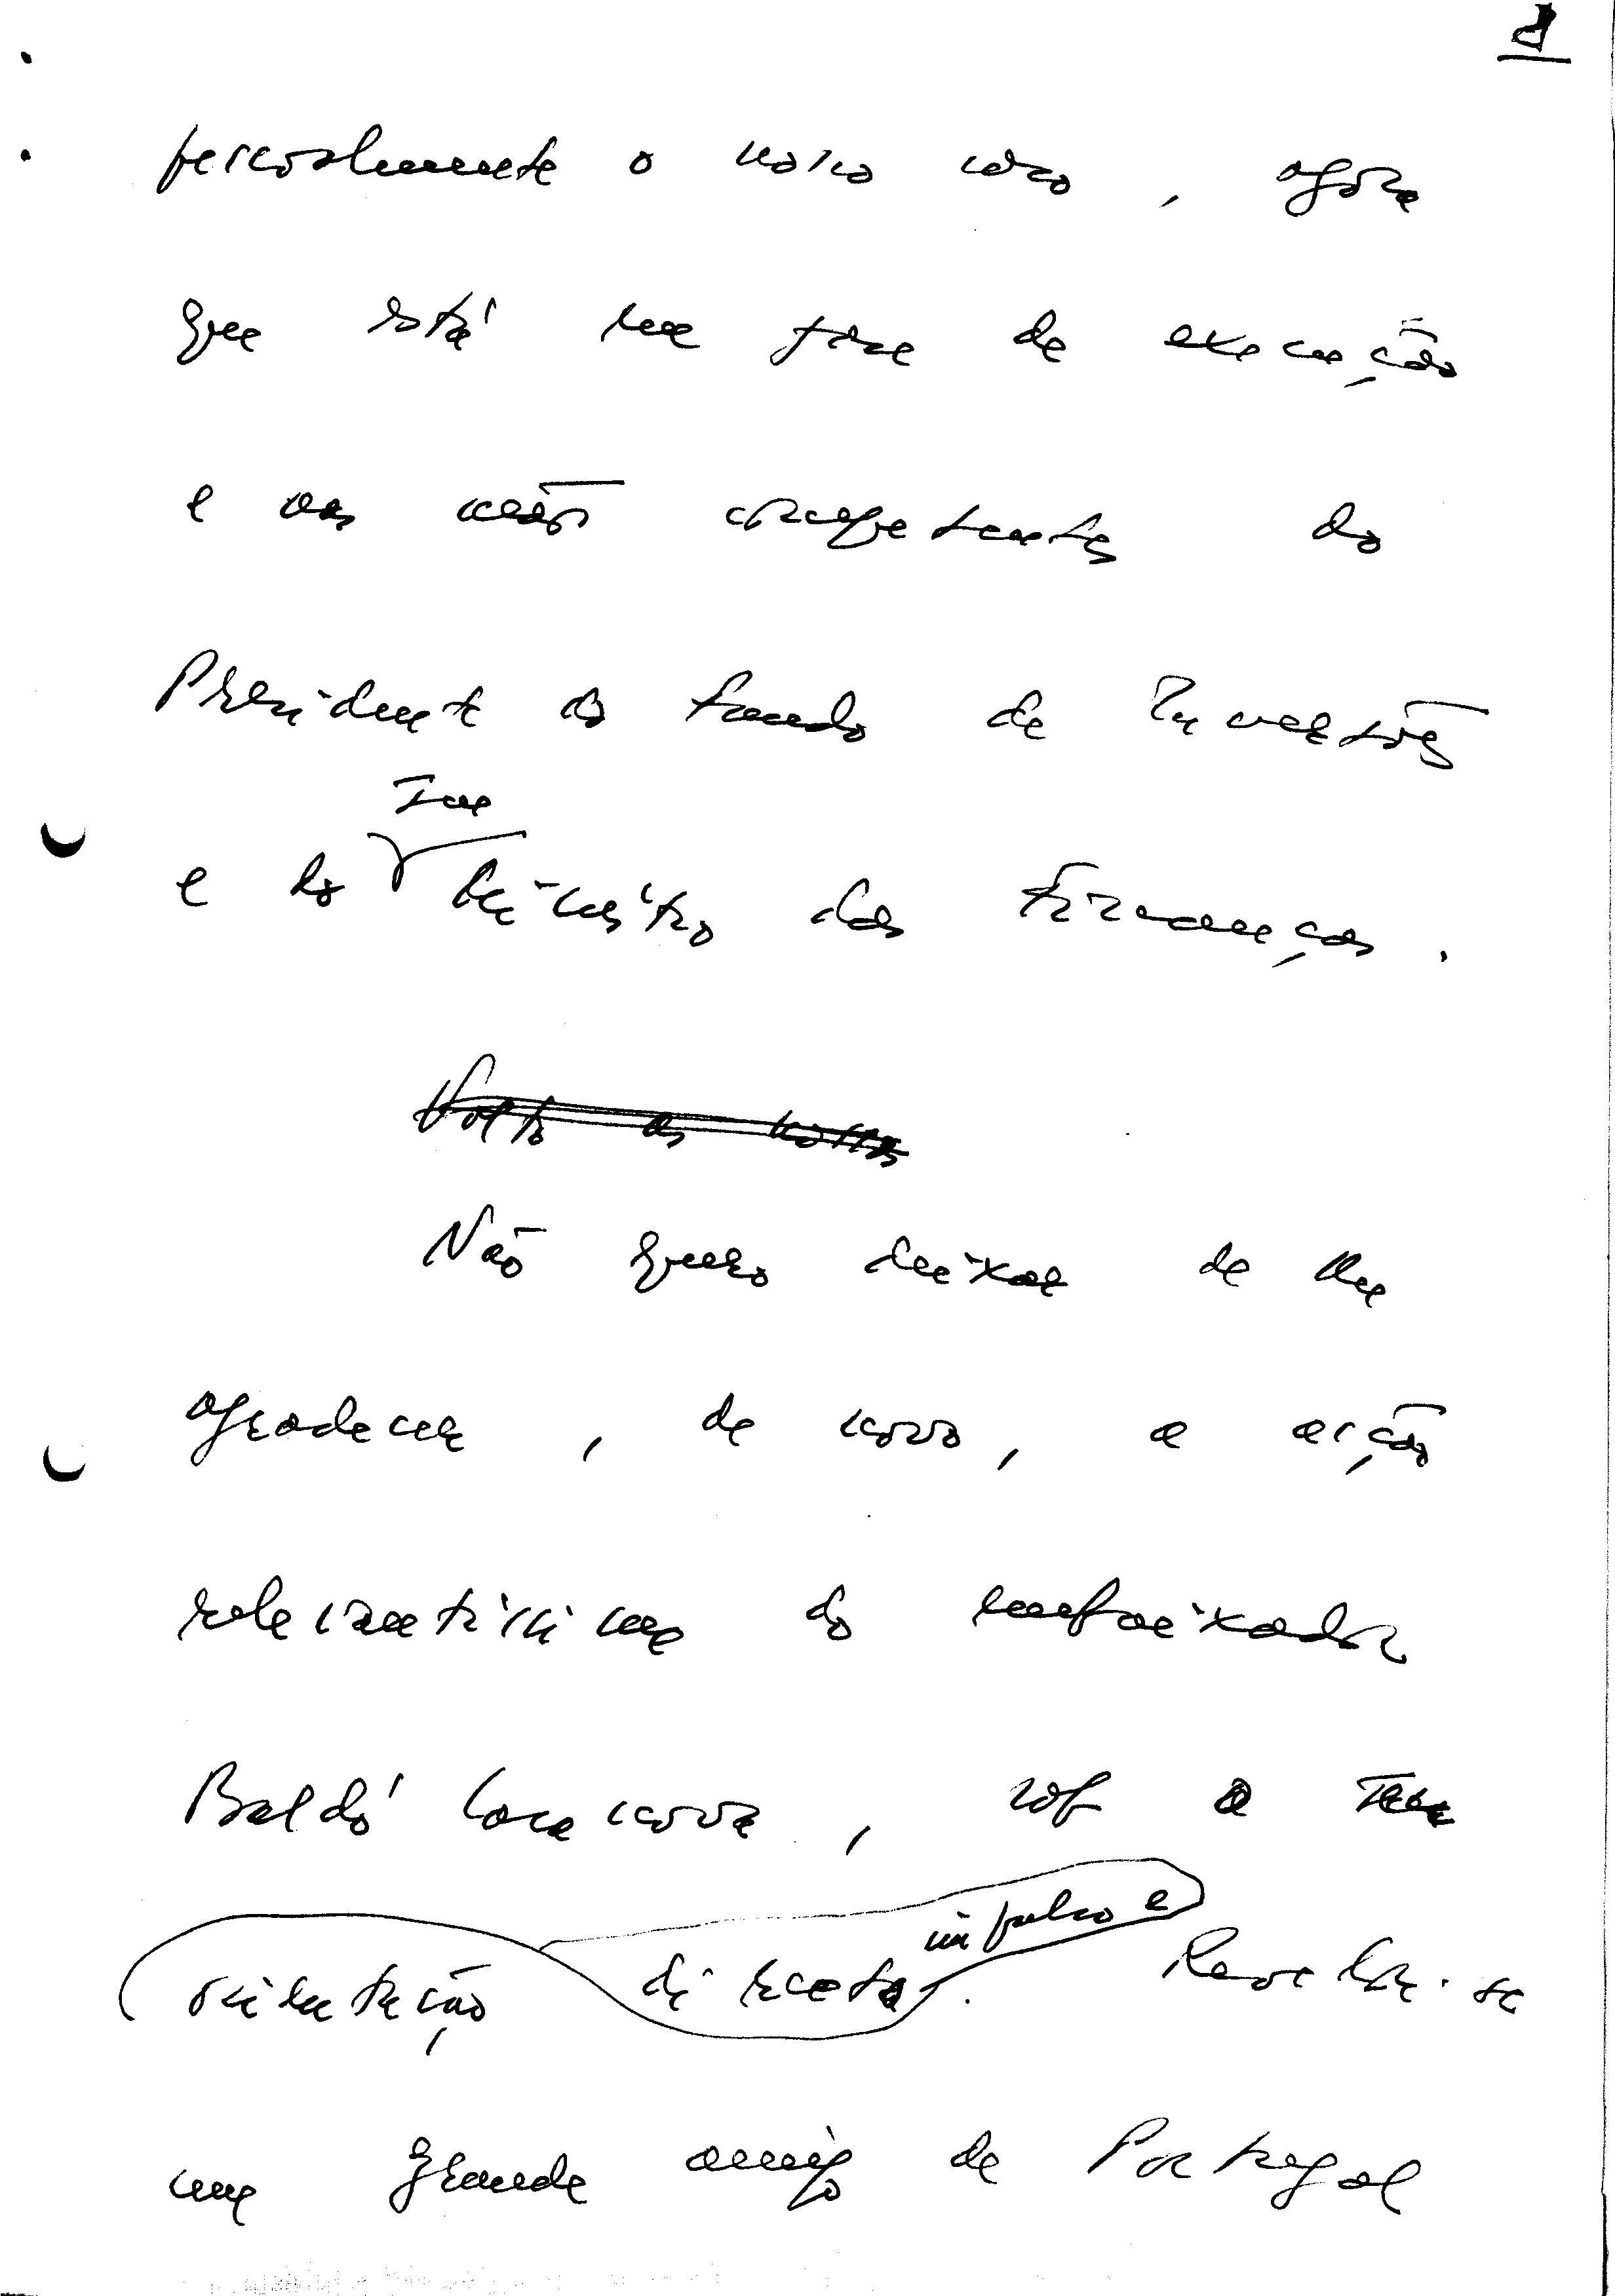 2
pessoalmente o nosso caso, agora
que está na fase de execução
e nas mãos competentes do
Presidente do Fundo de Inversões
e do Seu
Ministro das Finanças.
Volto às notas
Não quero deixar de lhe
agradecer, de novo, a acção
relevantíssima do embaixador
Baldó Casanova, sob a sua
impulso e
orientação directa. Revelou-se
um grande amigo de Portugal